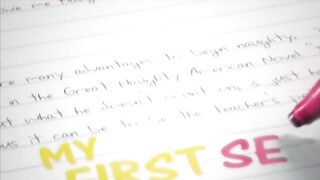 give me
are many advantages to begin naughty.
in the Great Naughty American Novel
but what he doesn't count on is just h
us it can be to be the teacher's
MY
FIRST SE